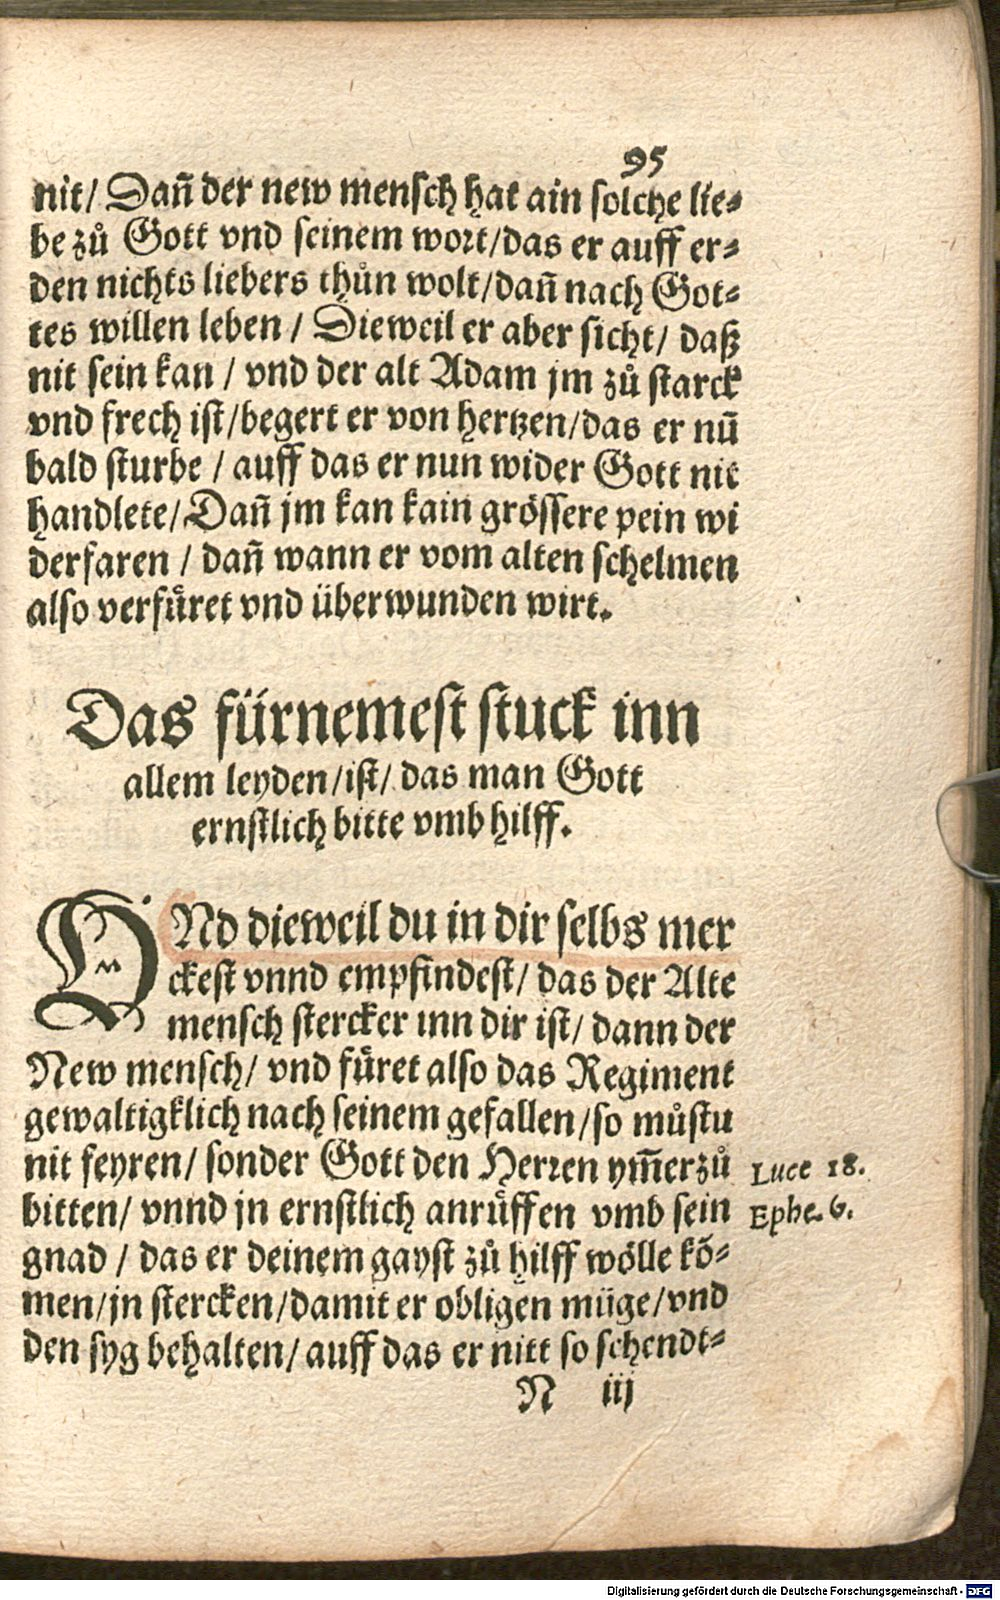 95
nit/ Dañ der new mensch hat ain solche lie⸗
be zů Gott vnd seinem wort/das er auff er⸗
den nichts liebers thůn wolt/dañ nach Got⸗
tes willen leben / Dieweil er aber sicht/ daß
nit sein kan / vnd der alt Adam jm zů starck
vnd frech ist/begert er von hertzen/das er nū
bald sturbe / auff das er nun wider Gott nit
handlete/Dañ jm kan kain grössere pein wi
derfaren / dañ wann er vom alten schelmen
also verfüret vnd überwunden wirt.
Das fürnemest stuck inn
allem leyden/ist/ das man Gott
ernstlich bitte vmb hilff.
VNd dieweil du in dir selbs mer
ckest vnnd empfindest/ das der Alte
mensch stercker inn dir ist/ dann der
New mensch/ vnd füret also das Regiment
gewaltigklich nach seinem gefallen/so můstu
nit feyren/ sonder Gott den Herren ym̃erzů
bitten/ vnnd jn ernstlich anrüffen vmb sein
gnad / das er deinem gayst zů hilff wölle kō⸗
men/jn stercken/damit er obligen müge/vnd
den syg behalten/ auff das er nitt so schendt⸗
Luce 18.
Ephe. 6.
N iij
Digitalisierung gefördert durch die Deutsche Forschungsgemeinschaft - DFG